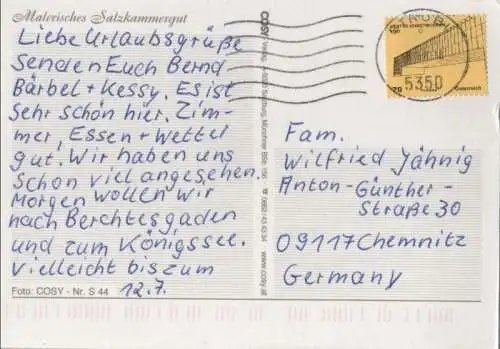 Malerisches Salzkammergut
Liebe Urlaubsgrüße
senden Euch Bernd
Bärbel + Kessy. Es ist
sehr schön hier. Zim-
mer, Essen + Wetter
gut. Wir haben uns
schon viel angesehen.
Morgen wollen wir
nach Berchtesgaden
und zum Königssee.
Vielleicht bis zum
12.7.
Foto: COSY - Nr. S 44
COSY Verlag, Salzburg, Münchner Bhfs.
www.cosy.at
5350
70
Österreich
Fam.
Wilfried Jähnig
Anton-Günther-
Straße 30
09117 Chemnitz
Germany